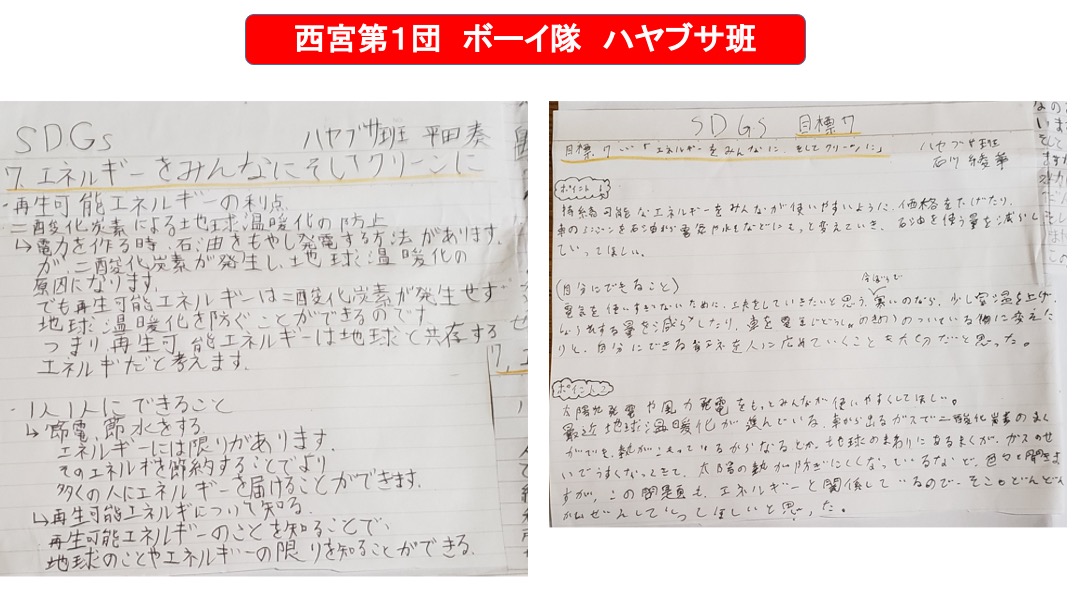 西宮第1団 ボーイ隊 ハヤブサ班
SDGs ハヤブサ班 平田奏
7.エネルギーをみんなにそしてクリーンに
・再生可能エネルギーの利点
二酸化炭素による地球温暖化の防止
↳電力を作る時、石油をもやし発電する方法があります。
が、二酸化炭素が発生し、地球温暖化の
原因になります。
でも再生可能エネルギーは二酸化炭素が発生せず
地球温暖化を防ぐことができるのです
つまり再生可能エネルギーは地球と共存する
エネルギだと考えます。
・1人1人にできること
↳節電、節水をする。
エネルギーには限りがあります。
そのエネルギを節約することでより
多くの人にエネルギーを届けることができます。
↳再生可能エネルギについて知る。
再生可能エネルギーのことを知ることで、
地球のことやエネルギーの限りを知ることができる。
SDGs 目標7
目標7…「エネルギーをみんなに、そしてクリーンに」
ハヤブサ班
石川 綾華
ポイント1
持続可能なエネルギーをみんなが使いやすいように、価格をさげたり、
車のエンジンを石油から電気や水などにもっと変えていき、石油を使う量を減らし
ていってほしい。
(自分にできること)
電気を使いすぎないために、工夫をしていきたいと思う。寒いのなら、少し室温を上げ、
する量を減らしたり、車を電気じどうしゃのきのうのついている物に変えた
りと、自分にできる省エネを人に広めていくことも大切だと思った。
ポイント2
太陽光発電や風力発電をもっとみんなが使いやすくしてほしい。
最近地球温暖化が進んでいる。車から出るガスで二酸化炭素のまく
ができ、熱がこもっているからなるとか、地球のまわりにあるまくが、ガスのせ
いでうすくなってきて、太陽の熱が防ぎにくくなっているなど、色々と聞きま
すが、この問題も、エネルギーと関係しているので、そこもどんどん
かいぜんしていってほしいと思った。